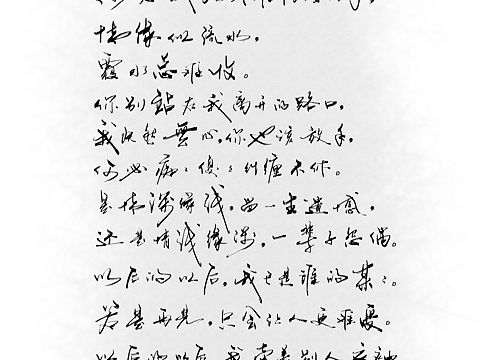 情缘似流水，
覆水总难收。
你别站在我离开的路口，
我既然無心，你也该放手，
何必痴〻傻〻纠缠不休。
是情深缘浅，留一生遗憾，
还是情浅缘深，一辈子怨偶。
以后的以后，我已是谁的某〻。
若是再见，只会让人更难受。
以后的以后